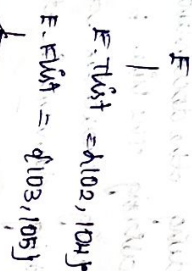 E
E.Tlist = {102, 104}
E.Flist = {103, 105}